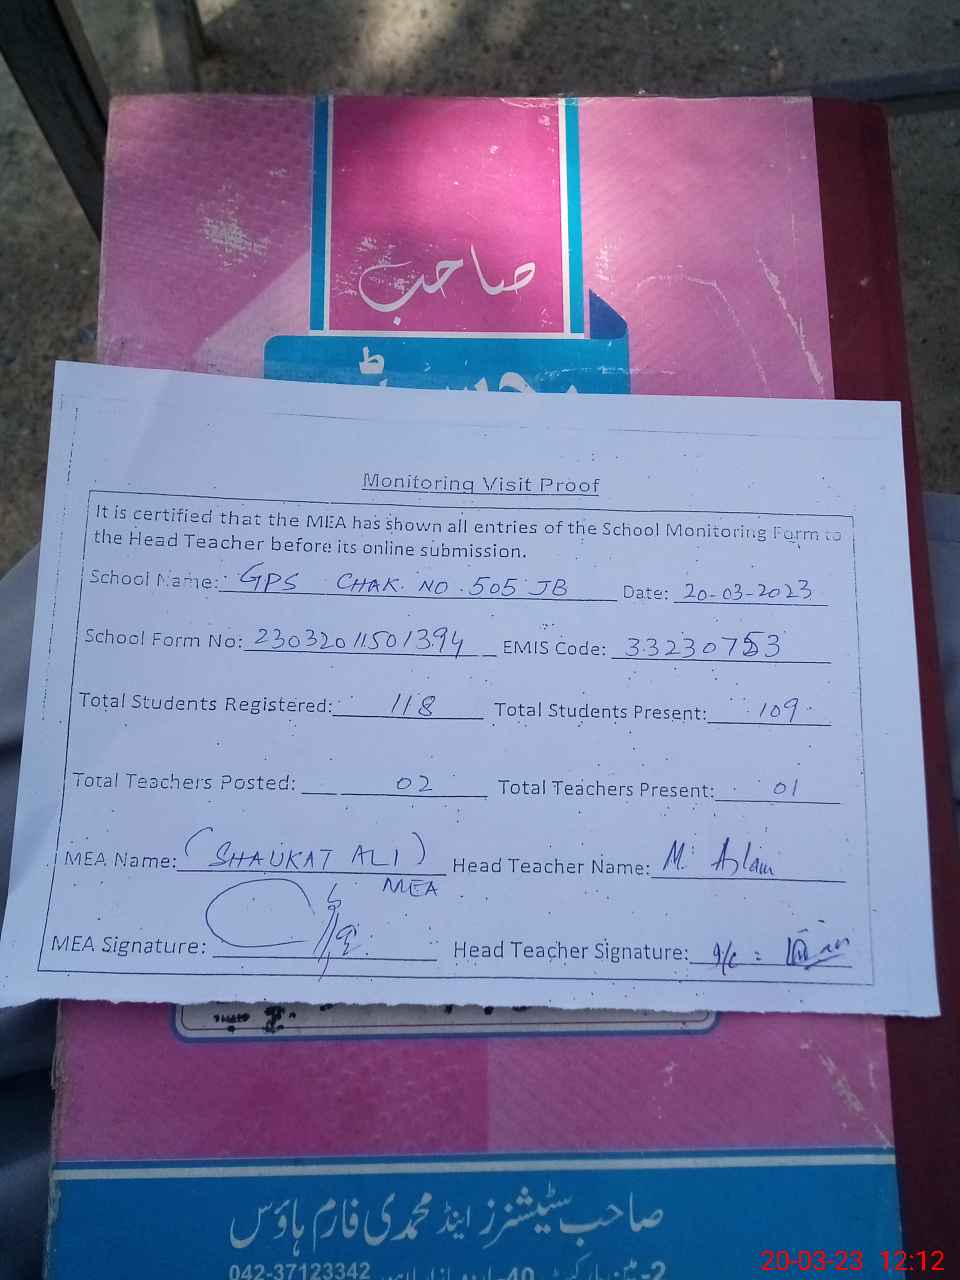 صاحب
Monitoring Visit Proof
It is certified that the MEA has shown all entries of the School Monitoring Form to
the Head Teacher before its online submission.
School Name: GPS CHAK. NO. 505 JB Date: 20-03-2023
School Form No: 23032011501394 EMIS Code: 33230753
Total Students Registered: 118 Total Students Present: 109
Total Teachers Posted: 02 Total Teachers Present: 01
MEA Name: (SHAUKAT ALI) Head Teacher Name: M. Aslam
MEA
MEA Signature: Head Teacher Signature: I/C :
صاحب سٹیشنرز اینڈ محمدی فارم ہاؤس
042-37123342
20-03-23 12:12